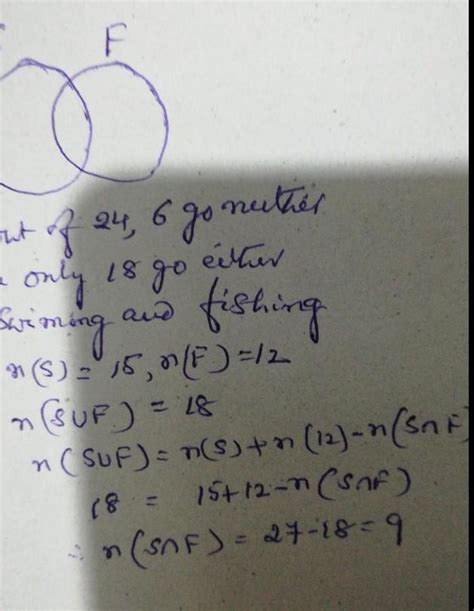 F
out of 24, 6 go neither
only 18 go either
Swiming and fishing
n(S) = 15, n(F) = 12
n(S∪F) = 18
n(S∪F) = n(S) + n(12) - n(S∩F)
18 = 15+12-n(S∩F)
∴ n(S∩F) = 27-18 = 9